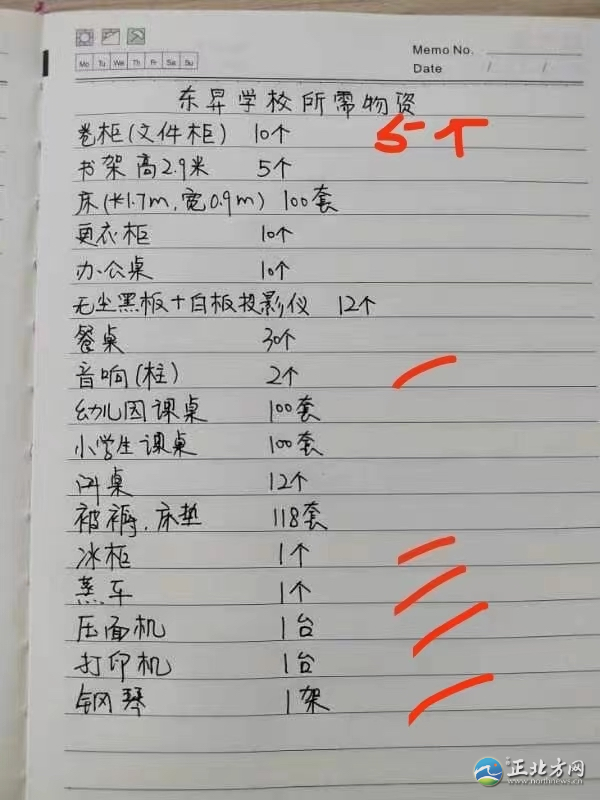 Memo No.
Mo Tu We Th Fr Sa Su
Date / /
东昇学校所需物资
卷柜(文件柜) 10个 5个
书架高2.9米 5个
床(长1.7m,宽0.9m) 100套
更衣柜 10个
办公桌 10个
无尘黑板+白板投影仪 12个
餐桌 30个
音响(柱) 2个
幼儿园课桌 100套
小学生课桌 100套
讲桌 12个
被褥、床垫 118套
冰柜 1个
蒸车 1个
压面机 1台
打印机 1台
钢琴 1架
正北方网
www.northnews.cn